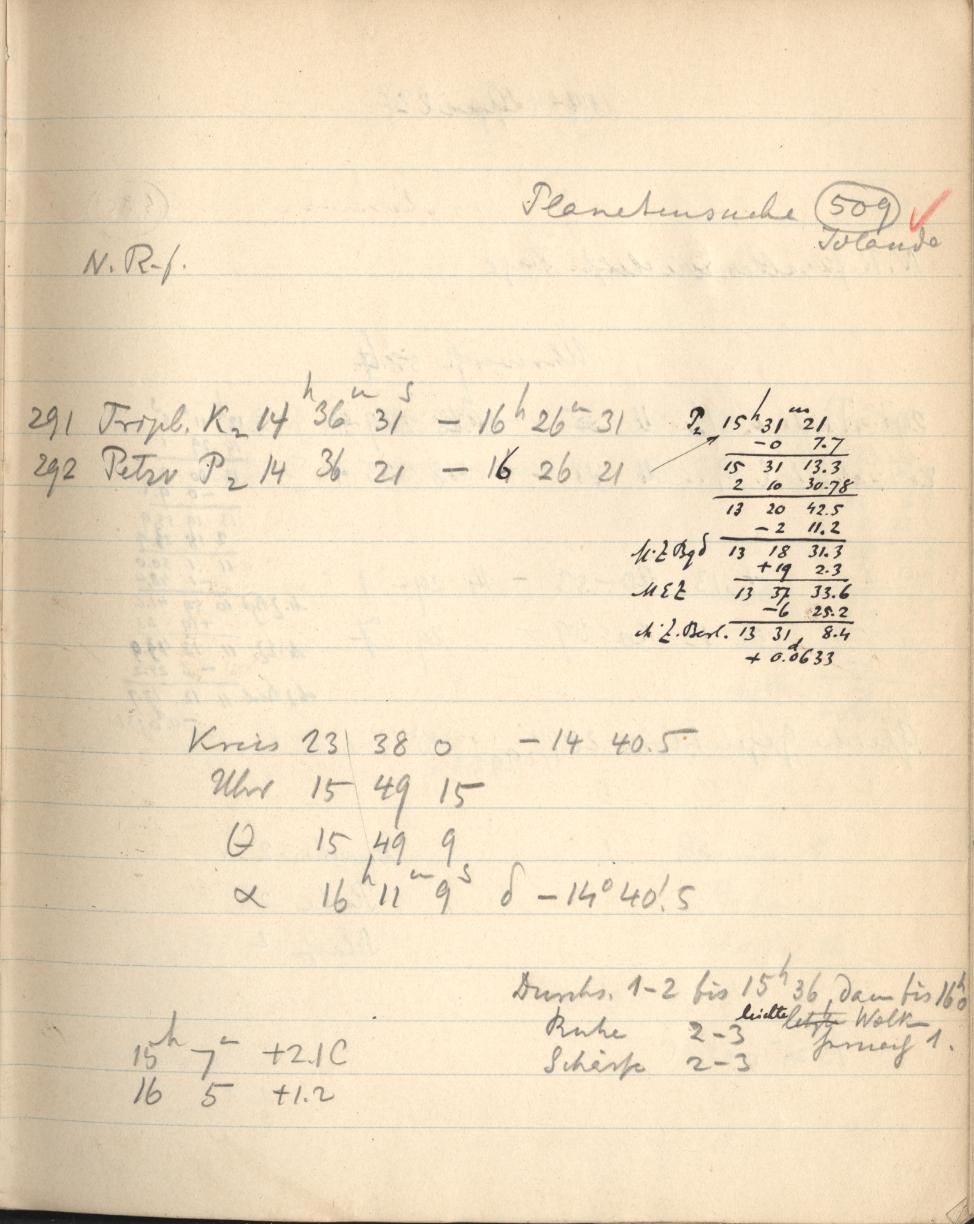 Planetensuche 509
Iolanda
N. R-f.
291 Tripl. K₂ 14ʰ 36ᵐ 31ˢ — 16ʰ 26ᵐ 31
292 Petzv P₂ 14 36 21 — 16 26 21
P₂ 15ʰ 31ᵐ 21
-0 7.7
15 31 13.3
2 10 30.78
13 20 42.5
-2 11.2
M.Z.Bgd 13 18 31.3
+19 2.3
MEZ 13 37 33.6
-6 25.2
M.Z.Berl. 13 31 8.4
+ 0.ᵈ0633
Kreis 23 38 0 -14 40.5
Uhr 15 49 15
θ 15 49 9
α 16ʰ 11ᵐ 9ˢ δ -14° 40'.5
Durchs. 1-2 bis 15ʰ 36, dann bis 16ʰ 0
Ruhe 2-3 leichte Wolk
Schärfe 2-3 1.
15ʰ 7ᵐ +2.1C
16 5 +1.2